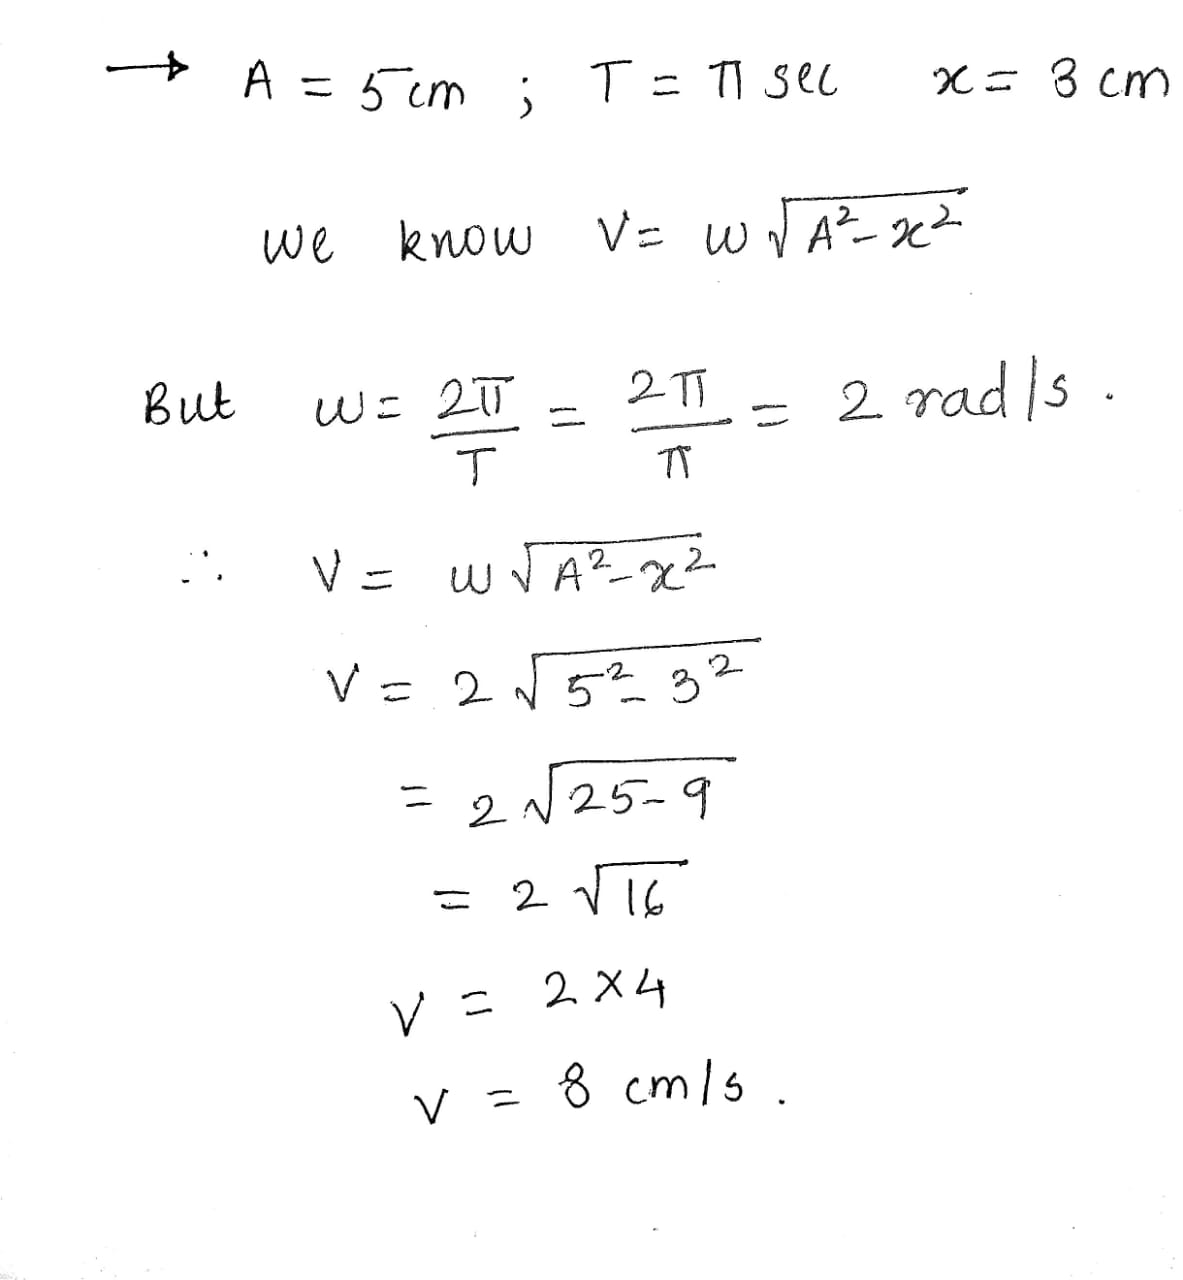 → A = 5 cm ; T = π sec x = 3 cm
we know V = w √A²-x²
But w = 2π/T = 2π/π = 2 rad/s .
∴ V = w √A²-x²
V = 2 √5²-3²
= 2 √25-9
= 2 √16
V = 2 × 4
V = 8 cm/s .